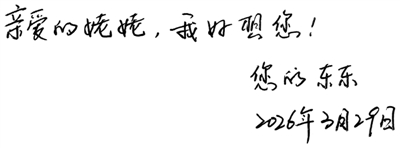 亲爱的姥姥，我好想您！
您的东东
2026年3月29日